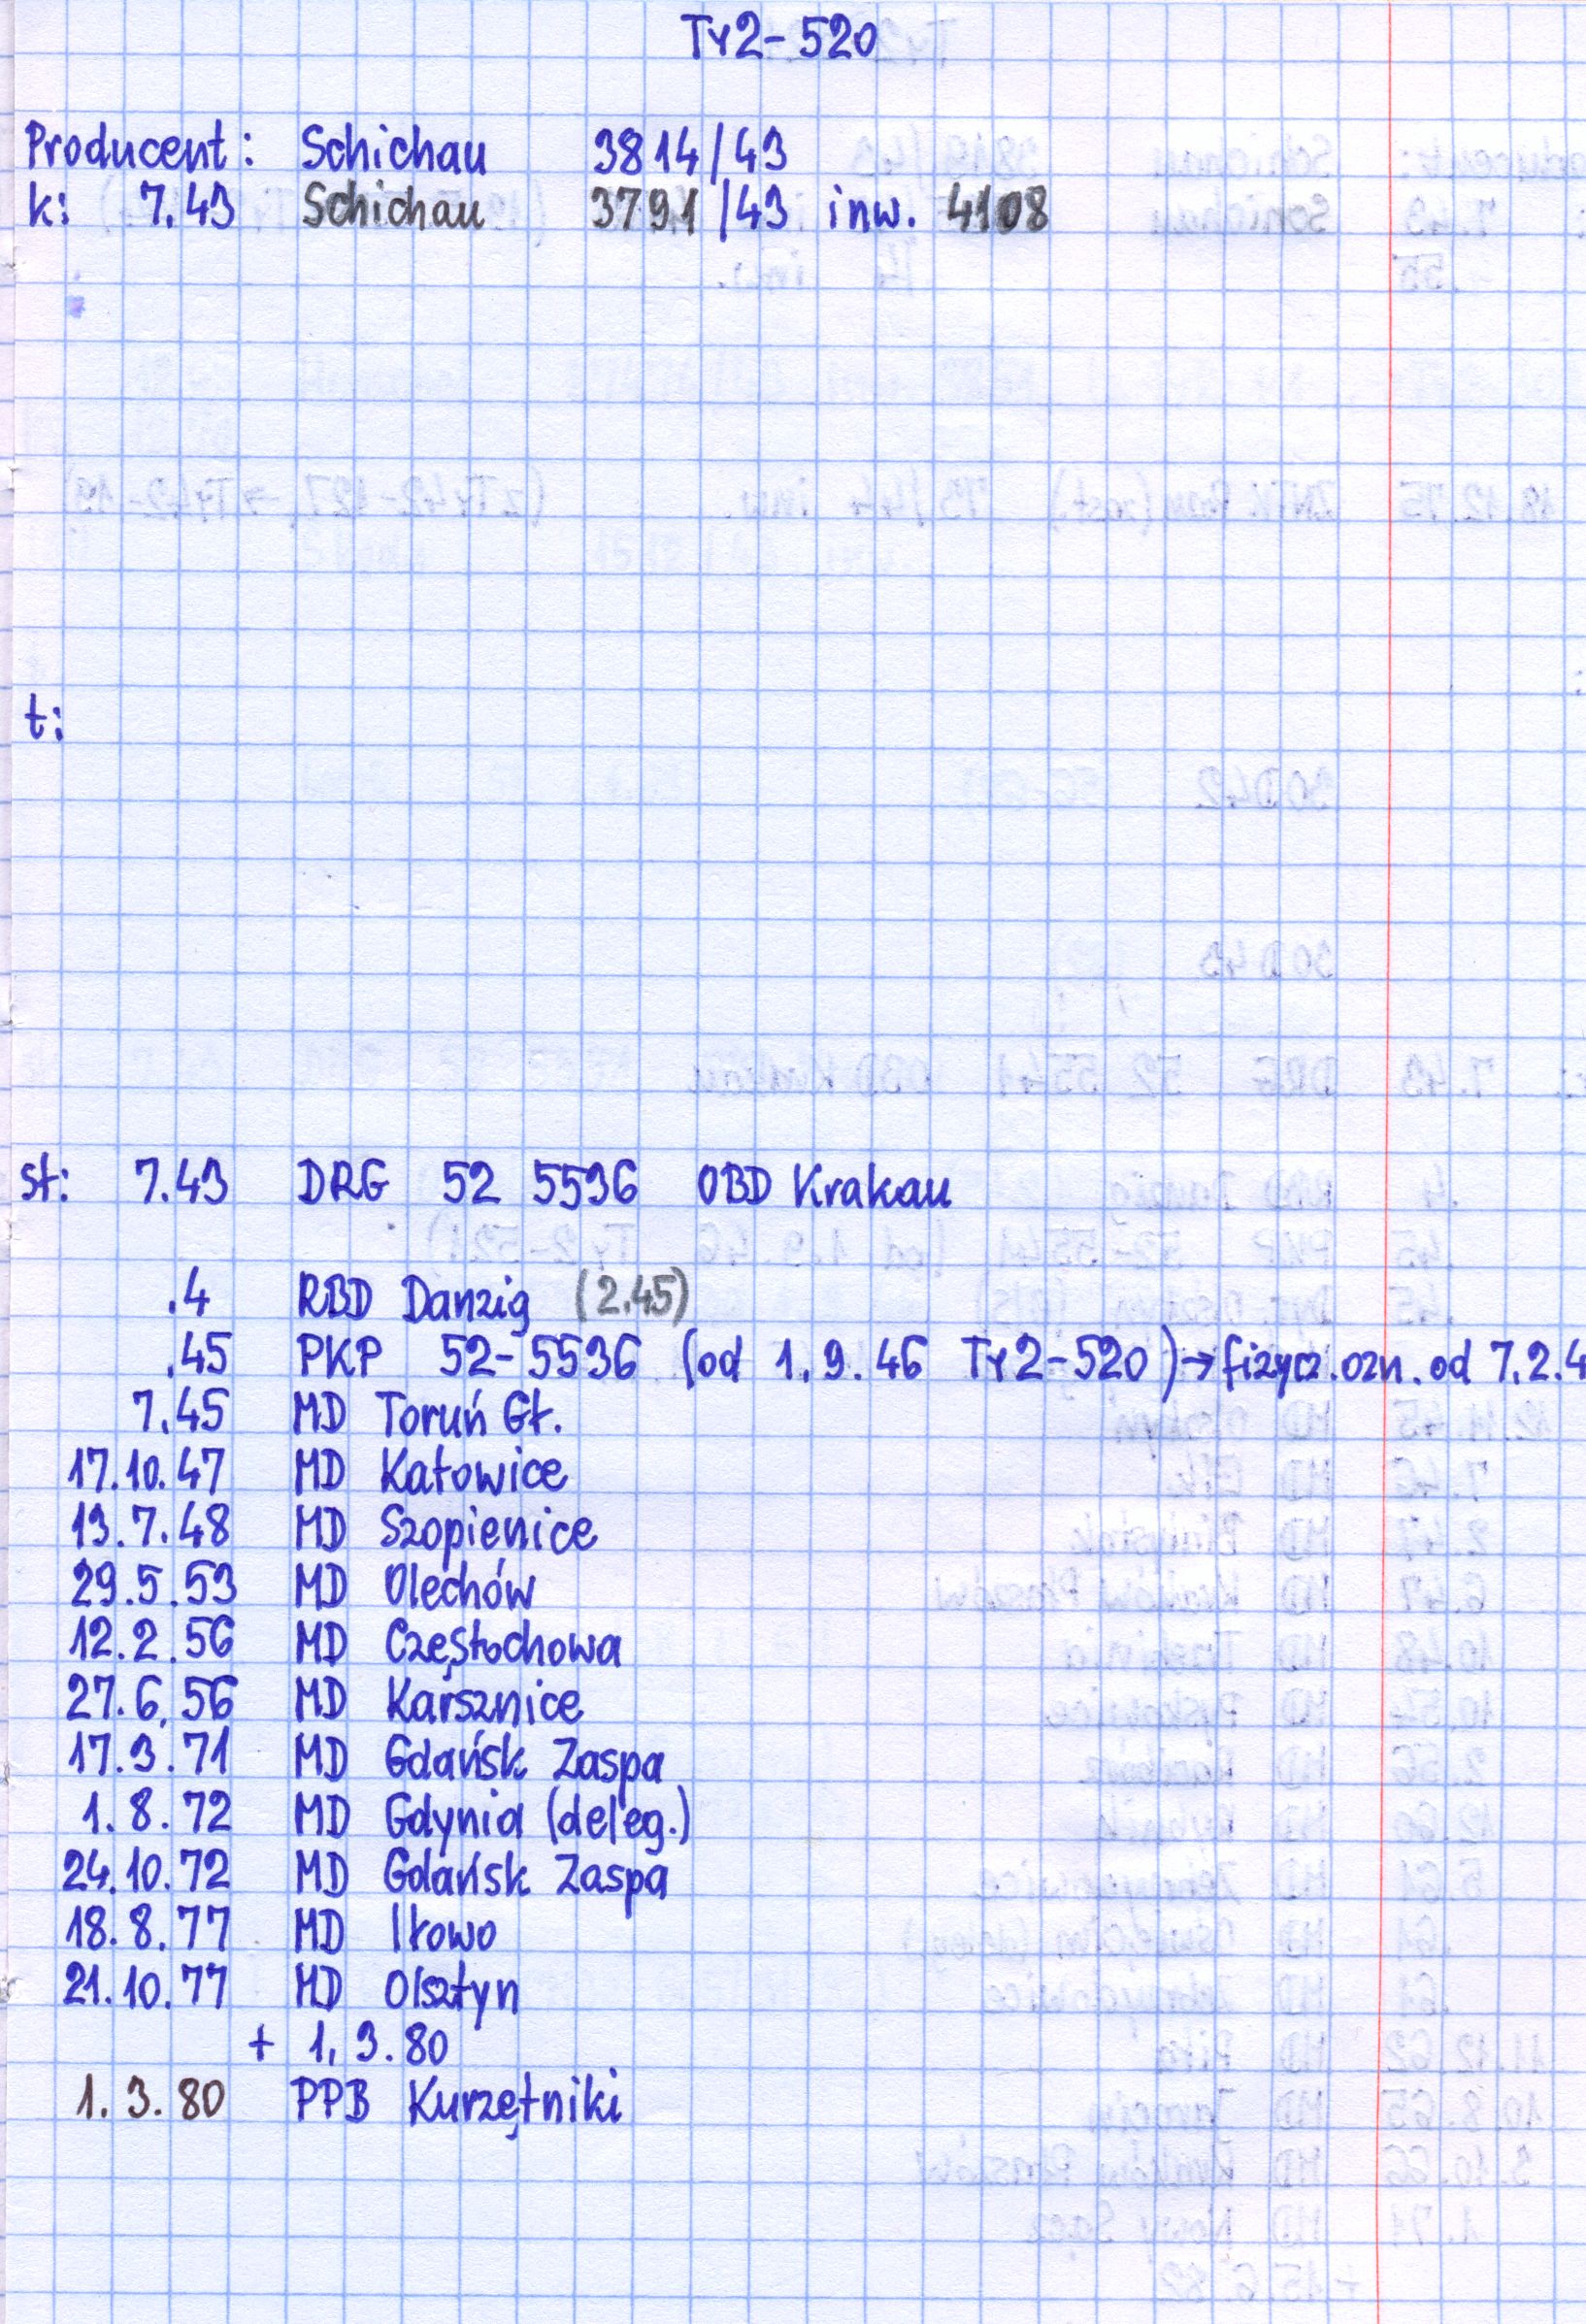 Ty2-520
Producent: Schichau 3814/43
k: 7.43 Schichau 3791/43 inw. 4108
t:
st: 7.43 DRG 52 5536 OBD Krakau
.4 RBD Danzig (2.45)
.45 PKP 52-5536 (od 1.9.46 Ty2-520)→fizycz.ozn.od 7.2.4
7.45 MD Toruń Gł.
17.10.47 MD Katowice
13.7.48 MD Szopienice
29.5.53 MD Olechów
12.2.56 MD Częstochowa
27.6.56 MD Karsznice
17.3.71 MD Gdańsk Zaspa
1.8.72 MD Gdynia (deleg.)
24.10.72 MD Gdańsk Zaspa
18.8.77 MD Iłowo
21.10.77 MD Olsztyn
+ 1.3.80
1.3.80 PPB Kurzętniki